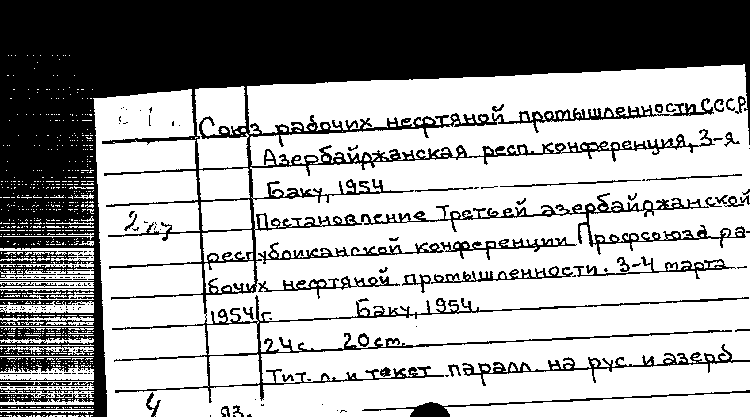 Союз рабочих нефтяной промышленности СССР.
Азербайджанская респ. конференция, 3-я.
Баку, 1954
Постановление Третьей азербайджанской
республиканской конференции Профсоюза ра-
бочих нефтяной промышленности. 3-4 марта
1954 г. Баку, 1954.
24 с. 20 cm.
Тит. л. и текст паралл. на рус. и азерб
4 яз.